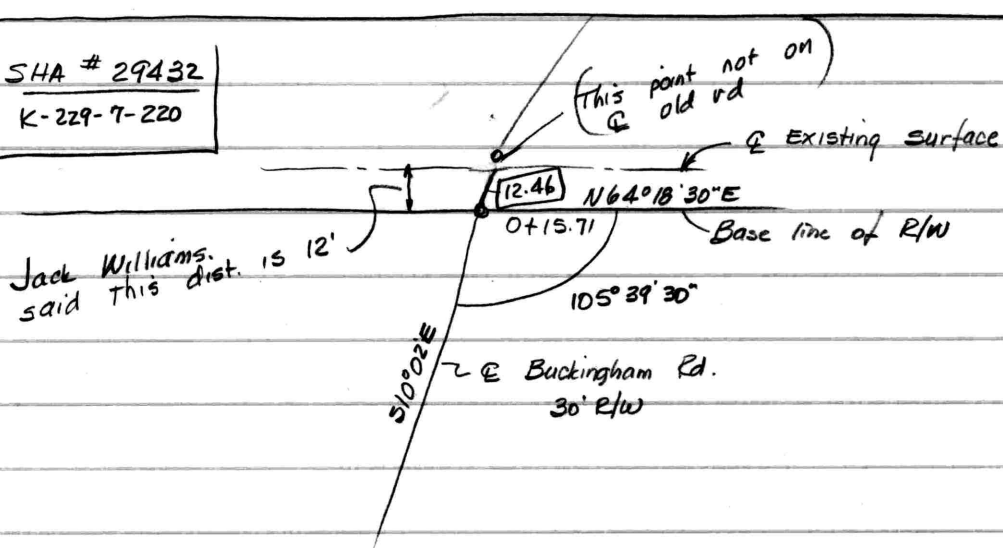 SHA # 29432
K-229-7-220
(This point not on
℄ old rd)
℄ Existing Surface
12.46
N64°18'30"E
0+15.71
Base line of R/W
Jack Williams.
said This dist. is 12'
105°39'30"
S10°02'E
℄ Buckingham Rd.
30' R/W